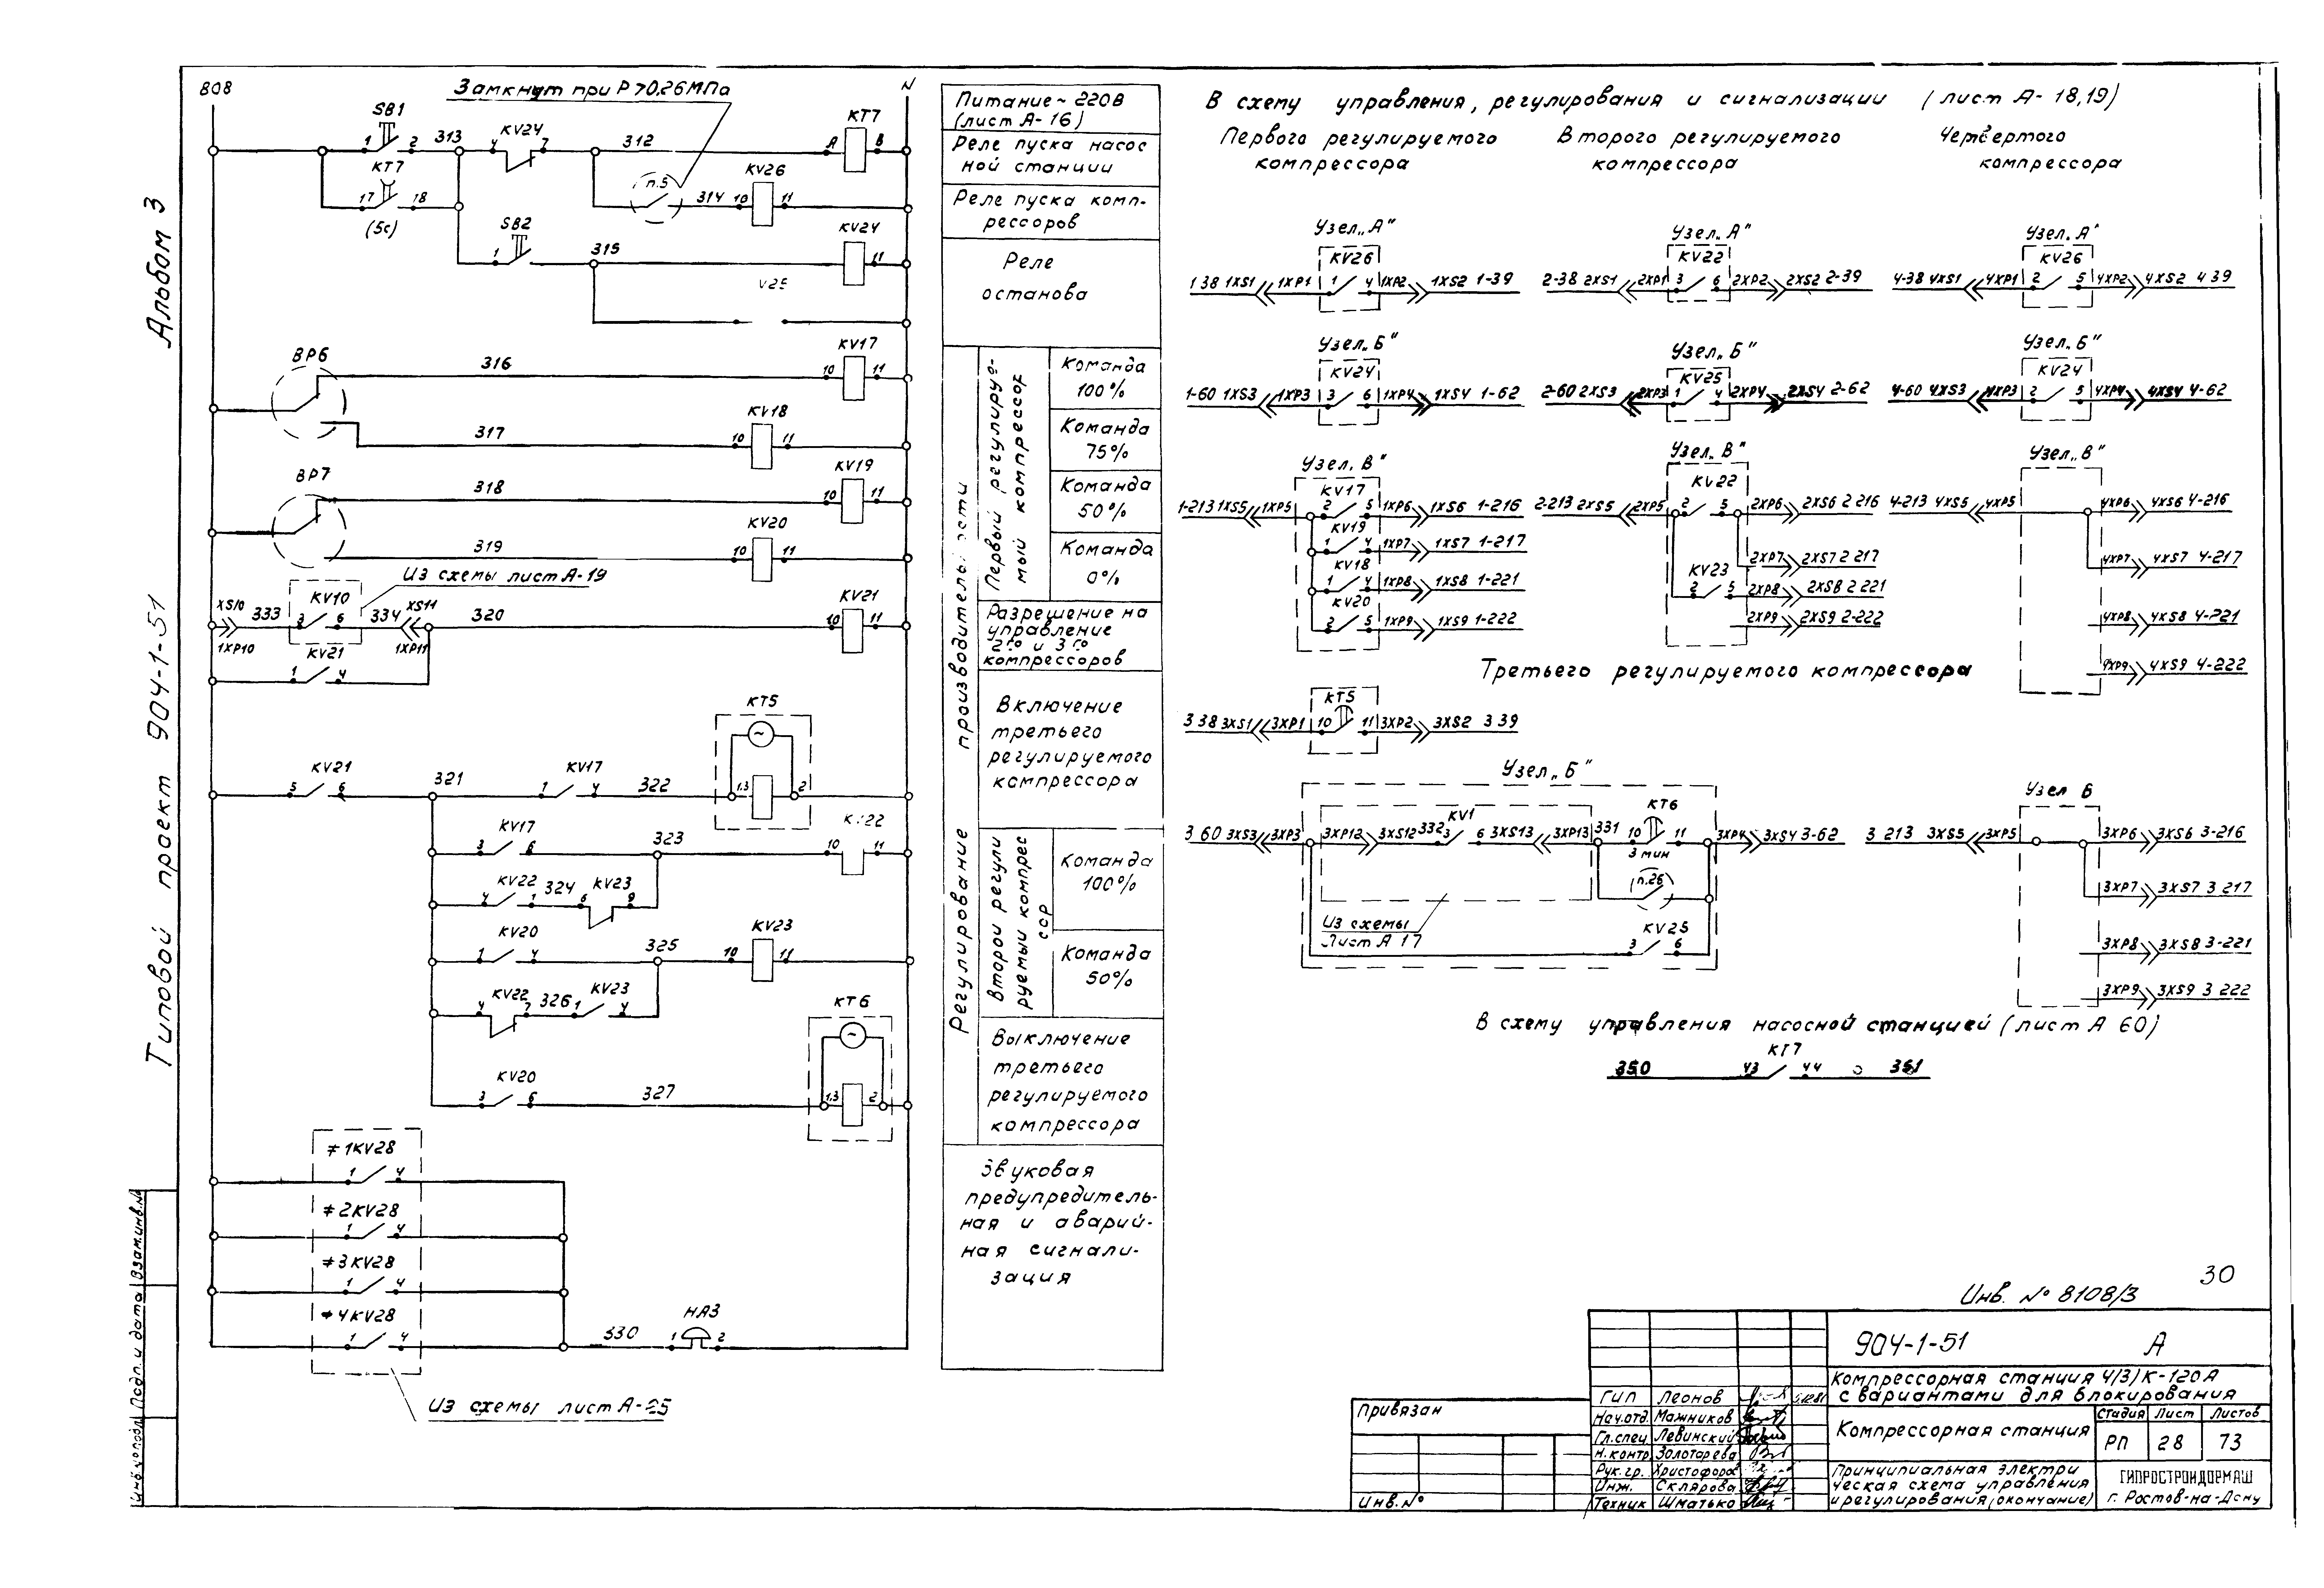 Альбом 3
Типовой проект 904-1-51
808
Замкнут при P>0,26МПа
N
SB1
1 2 313
KV24
4 7 312
KT7
A B
KT7
17 18
(5с)
п.5
314
KV26
10 11
SB2
1
315
KV24
11
BP6
316
KV17
10 11
317
KV18
10 11
BP7
318
KV19
10 11
319
KV20
10 11
Из схемы лист А-19
XS10 333
KV10
3 6
334 XS11
320
KV21
10 11
1XP10
1XP11
KV21
1 4
KT5
~
KV21
5 6
321
KV17
1 4
322
1.3 2
KV17
3 6
323
10 11
KV22
4 1
324
KV23
6 9
KV20
1 4
325
KV23
10 11
KV22
4 7
326
KV23
1 4
KT6
~
KV20
3 6
327
1.3 2
≠1KV28
1 4
≠2KV28
1 4
≠3KV28
1 4
≠4KV28
1 4
330
НА3
1 2
Из схемы лист А-25
Питание ~ 220В
(лист А-16)
Реле пуска насос
ной станции
Реле пуска комп-
рессоров
Реле
останова
Регулирование производительности
Первый регулируе-
мый компрессор
Команда
100%
Команда
75%
Команда
50%
Команда
0%
Разрешение на
управление
2го и 3го
компрессоров
Включение
третьего
регулируемого
компрессора
Второй регули
руемый компрес
сор
Команда
100%
Команда
50%
Выключение
третьего
регулируемого
компрессора
Звуковая
предупредитель-
ная и аварий-
ная сигнали-
зация
В схему управления, регулирования и сигнализации (лист А-18,19)
Первого регулируемого
компрессора
Второго регулируемого
компрессора
Четвёртого
компрессора
Узел „А"
KV26
1 38 1XS1 1XP1 1 4 1XP2 1XS2 1-39
Узел „А"
KV22
2-38 2XS1 2XP1 3 6 2XP2 2XS2 2-39
Узел „А"
KV26
4-38 4XS1 4XP1 2 5 4XP2 4XS2 4 39
Узел „Б"
KV24
1-60 1XS3 1XP3 3 6 1XP4 1XS4 1-62
Узел „Б"
KV25
2-60 2XS3 2XP3 1 4 2XP4 2XS4 2-62
Узел „Б"
KV24
4-60 4XS3 4XP3 2 5 4XP4 4XS4 4-62
Узел „В"
KV17
1-213 1XS5 1XP5 2 5 1XP6 1XS6 1-216
KV19
1 4 1XP7 1XS7 1-217
KV18
1 4 1XP8 1XS8 1-221
KV20
2 5 1XP9 1XS9 1-222
Узел „В"
KV22
2-213 2XS5 2XP5 2 5 2XP6 2XS6 2 216
2XP7 2XS7 2 217
KV23
2 5 2XP8 2XS8 2 221
2XP9 2XS9 2-222
Узел „В"
4-213 4XS5 4XP5 4XP6 4XS6 4-216
4XP7 4XS7 4-217
4XP8 4XS8 4-221
4XP9 4XS9 4-222
Третьего регулируемого компрессора
KT5
3 38 3XS1 3XP1 10 11 3XP2 3XS2 3 39
Узел „Б"
KV1
KT6
3 60 3XS3 3XP3 3XP12 3XS12 332 3 6 3XS13 3XP13 331 10 11 3XP4 3XS4 3-62
3 мин
п.26
Из схемы
Лист А 17
KV25
3 6
Узел В
3 213 3XS5 3XP5 3XP6 3XS6 3-216
3XP7 3XS7 3 217
3XP8 3XS8 3-221
3XP9 3XS9 3 222
В схему управления насосной станцией (лист А 60)
KT7
350 43 44 351
30
Инв. № 8108/3
904-1-51 А
Компрессорная станция 4/3/К-120А
с вариантами для блокирования
Компрессорная станция
Стадия Лист Листов
РП 28 73
Принципиальная электри
ческая схема управления
и регулирования (окончание)
ГИПРОСТРОЙДОРМАШ
г. Ростов-на-Дону
ГИП Леонов
Нач.отд. Мажников
Гл.спец Левинский
Н.контр. Золотарева
Рук.гр. Христофоров
Инж. Склярова
Техник Шматько
Привязан
Инв.№
Инв.№ подл. Подп. и дата Взам.инв.№